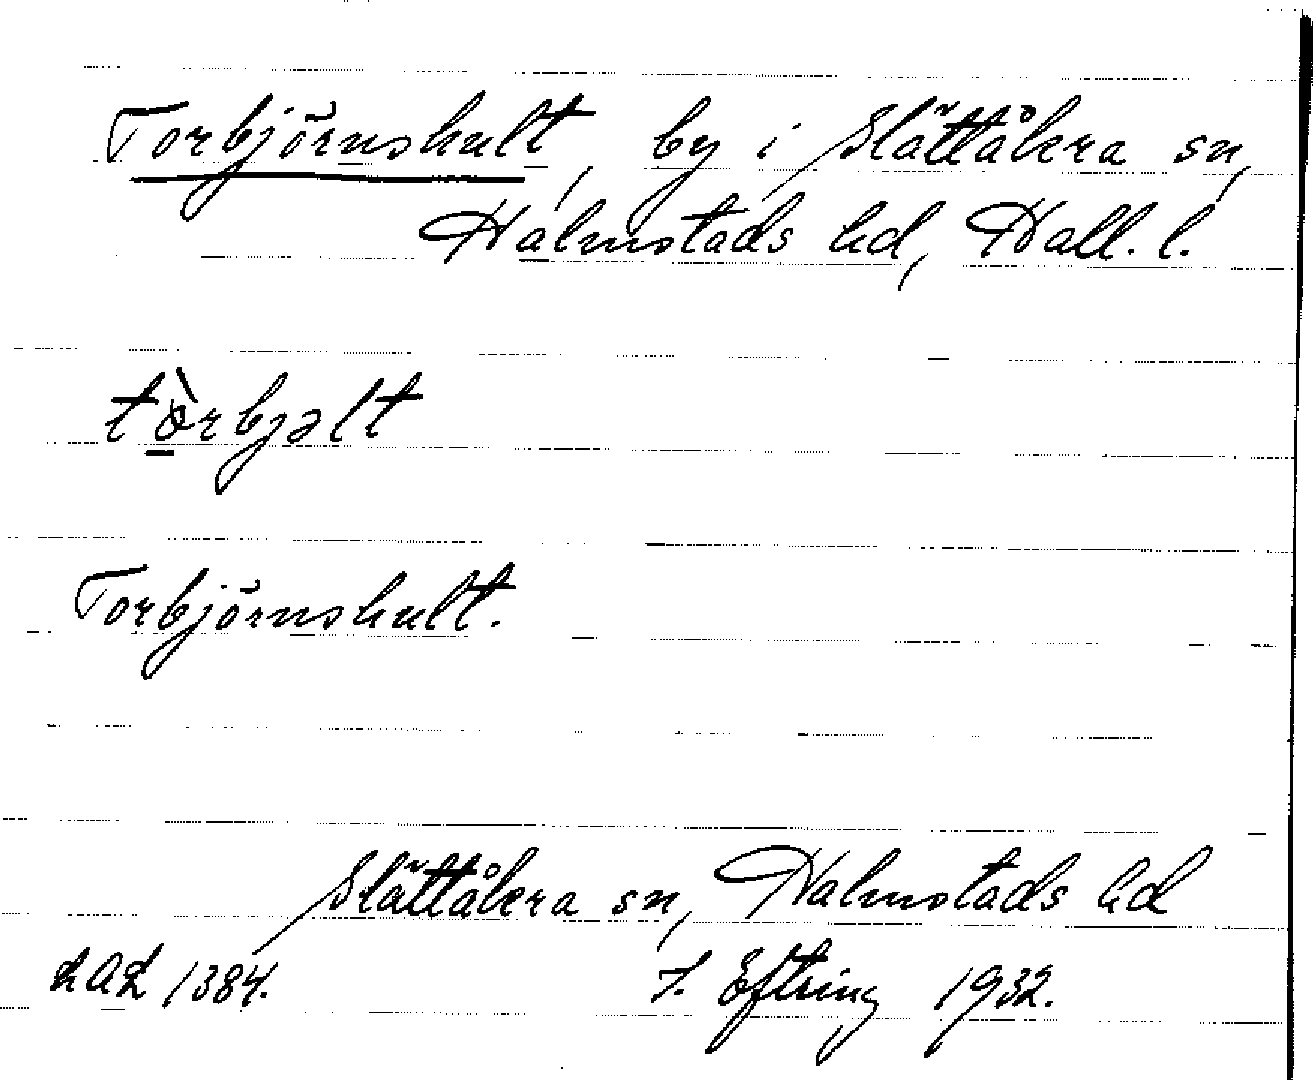 Torbjörnshult, by i Slättåkra sn,
Halmstads hd, Hall. l.
tòrbjəlt
Torbjörnshult.
Slättåkra sn, Halmstads hd
LAL 1384. F. Eftring 1932.